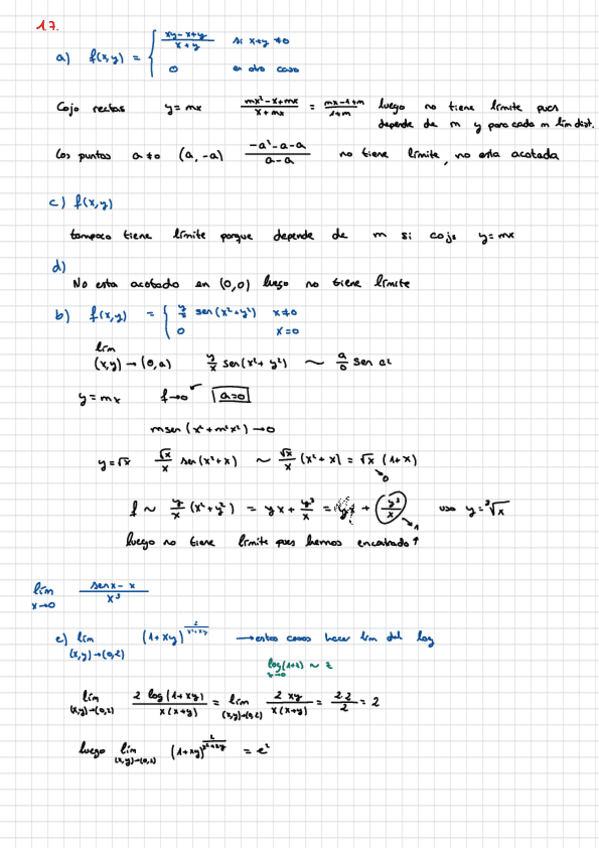 17.
a) f(x,y) = { xy-x+y / x+y si x+y ≠0
0 en otro caso
Cojo rectas y=mx mx²-x+mx / x+mx = mx-1+m / 1+m luego no tiene límite pues
depende de m y para cada m lim dist.
Los puntos a≠0 (a,-a) -a²-a-a / a-a no tiene límite, no esta acotada
c) f(x,y)
tampoco tiene límite porque depende de m si cojo y=mx
d)
No esta acotado en (0,0) luego no tiene límite
b) f(x,y) = { y/x sen(x²+y²) x≠0
0 x=0
lim (x,y)→(0,a) y/x sen(x²+y²) ~ a/0 sen a²
y=mx f→0 a=0
m sen(x²+m²x²)→0
y=√x √x/x sen(x²+x) ~ √x/x (x²+x) = √x (1+x)
→0
f ~ y/x (x²+y²) = yx + y³/x = yx + y³/x uso y=³√x
→1
luego no tiene límite pues hemos encontrado ↑
lim x→0 senx-x / x³
e) lim (x,y)→(0,2) (1+xy)^ 2/x²+xy → estos casos hacer lim del log
log(1+z) ~ z
z→0
lim (x,y)→(0,2) 2 log(1+xy) / x(x+y) = lim (x,y)→(0,2) 2xy / x(x+y) = 2·2 / 2 = 2
luego lim (x,y)→(0,2) (1+xy) = e²